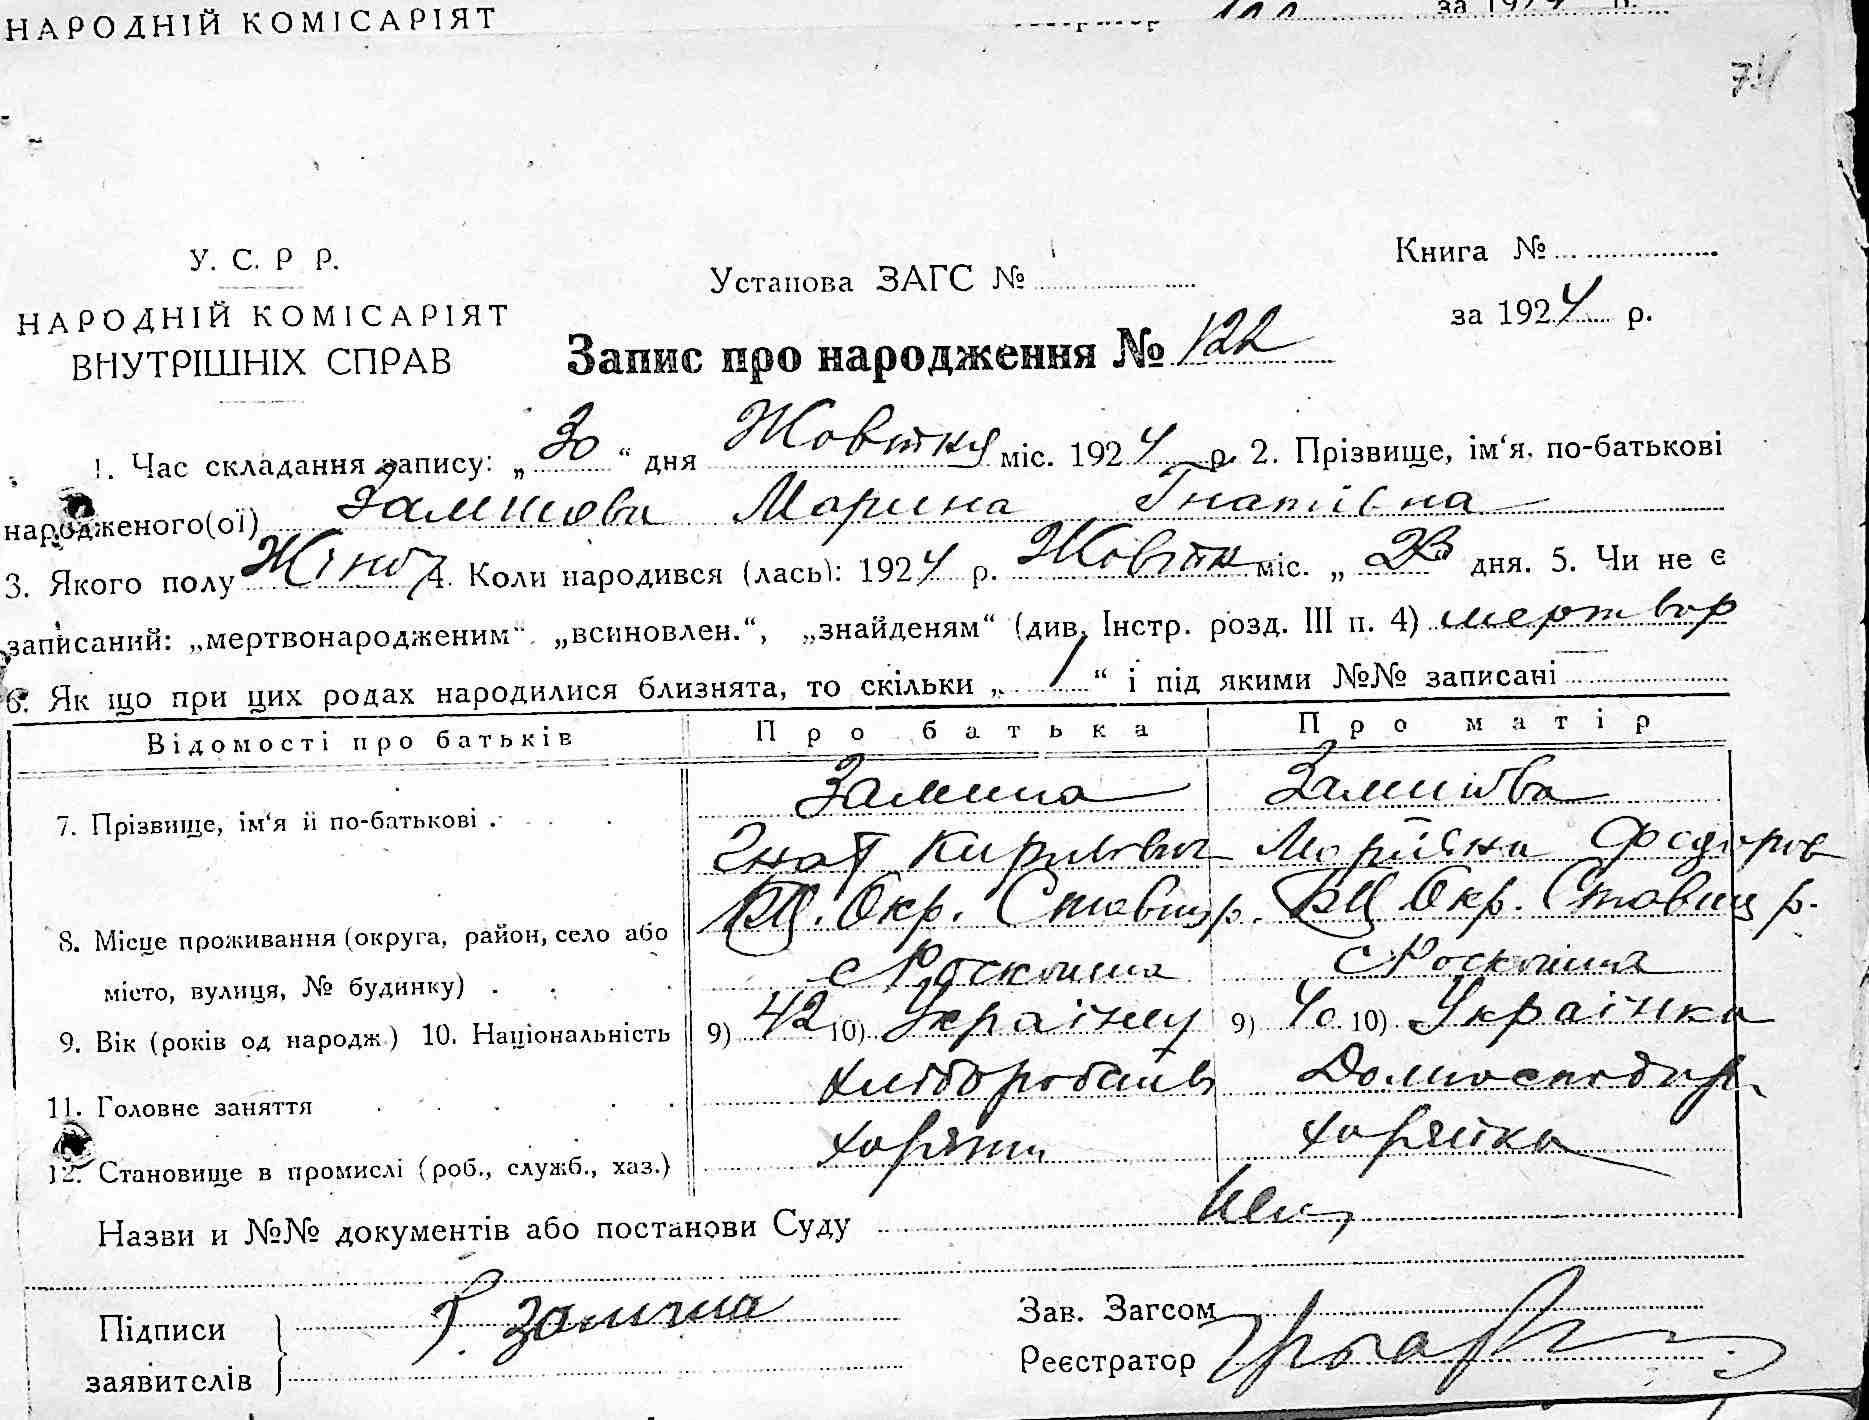 НАРОДНІЙ КОМІСАРІЯТ
за 1924 р.
74
У. С. Р Р.
НАРОДНІЙ КОМІСАРІЯТ
ВНУТРІШНІХ СПРАВ
Установа ЗАГС №
Книга №
за 1924 р.
Запис про народження № 122
1. Час складання запису: „30“ дня Жовтня міс. 1924 р. 2. Прізвище, ім‘я, по-батькові
народженого(ої) Марина Гнатівна
3. Якого полу Жіноч 4. Коли народився (лась): 1924 р. Жовтн міс. „23 дня. 5. Чи не є
записаний: „мертвонародженим“, „всиновлен.“, „знайденям“ (див. Інстр. розд. III п. 4)
6. Як що при цих родах народилися близнята, то скільки „1“ і під якими №№ записані
Відомості про батьків Про батька Про матір
7. Прізвище, ім‘я й по-батькові Замша
Гнат Кирилович Федоров
8. Місце проживання (округа, район, село або БЦ. Окр. Ставищ р. БЦ Окр. Ставищ р.
місто, вулиця, № будинку) с Роскошна с Роскошна
9. Вік (років од народж.) 10. Національність 9) 42 10) 9) 40 10) Українка
11. Головне заняття хлібороб
12. Становище в промислі (роб., служб., хаз.) хазяйка
Назви и №№ документів або постанови Суду
Підписи
заявителів
Г. Замша
Зав. Загсом
Реєстратор